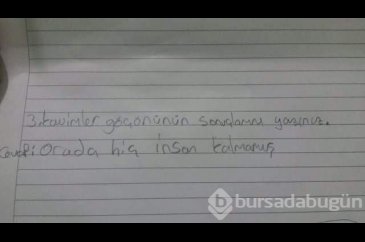 3. kavimler göçününün sonuçlarını yazınız.
Cevap: Orada hiç insan kalmamış
bursadabugün